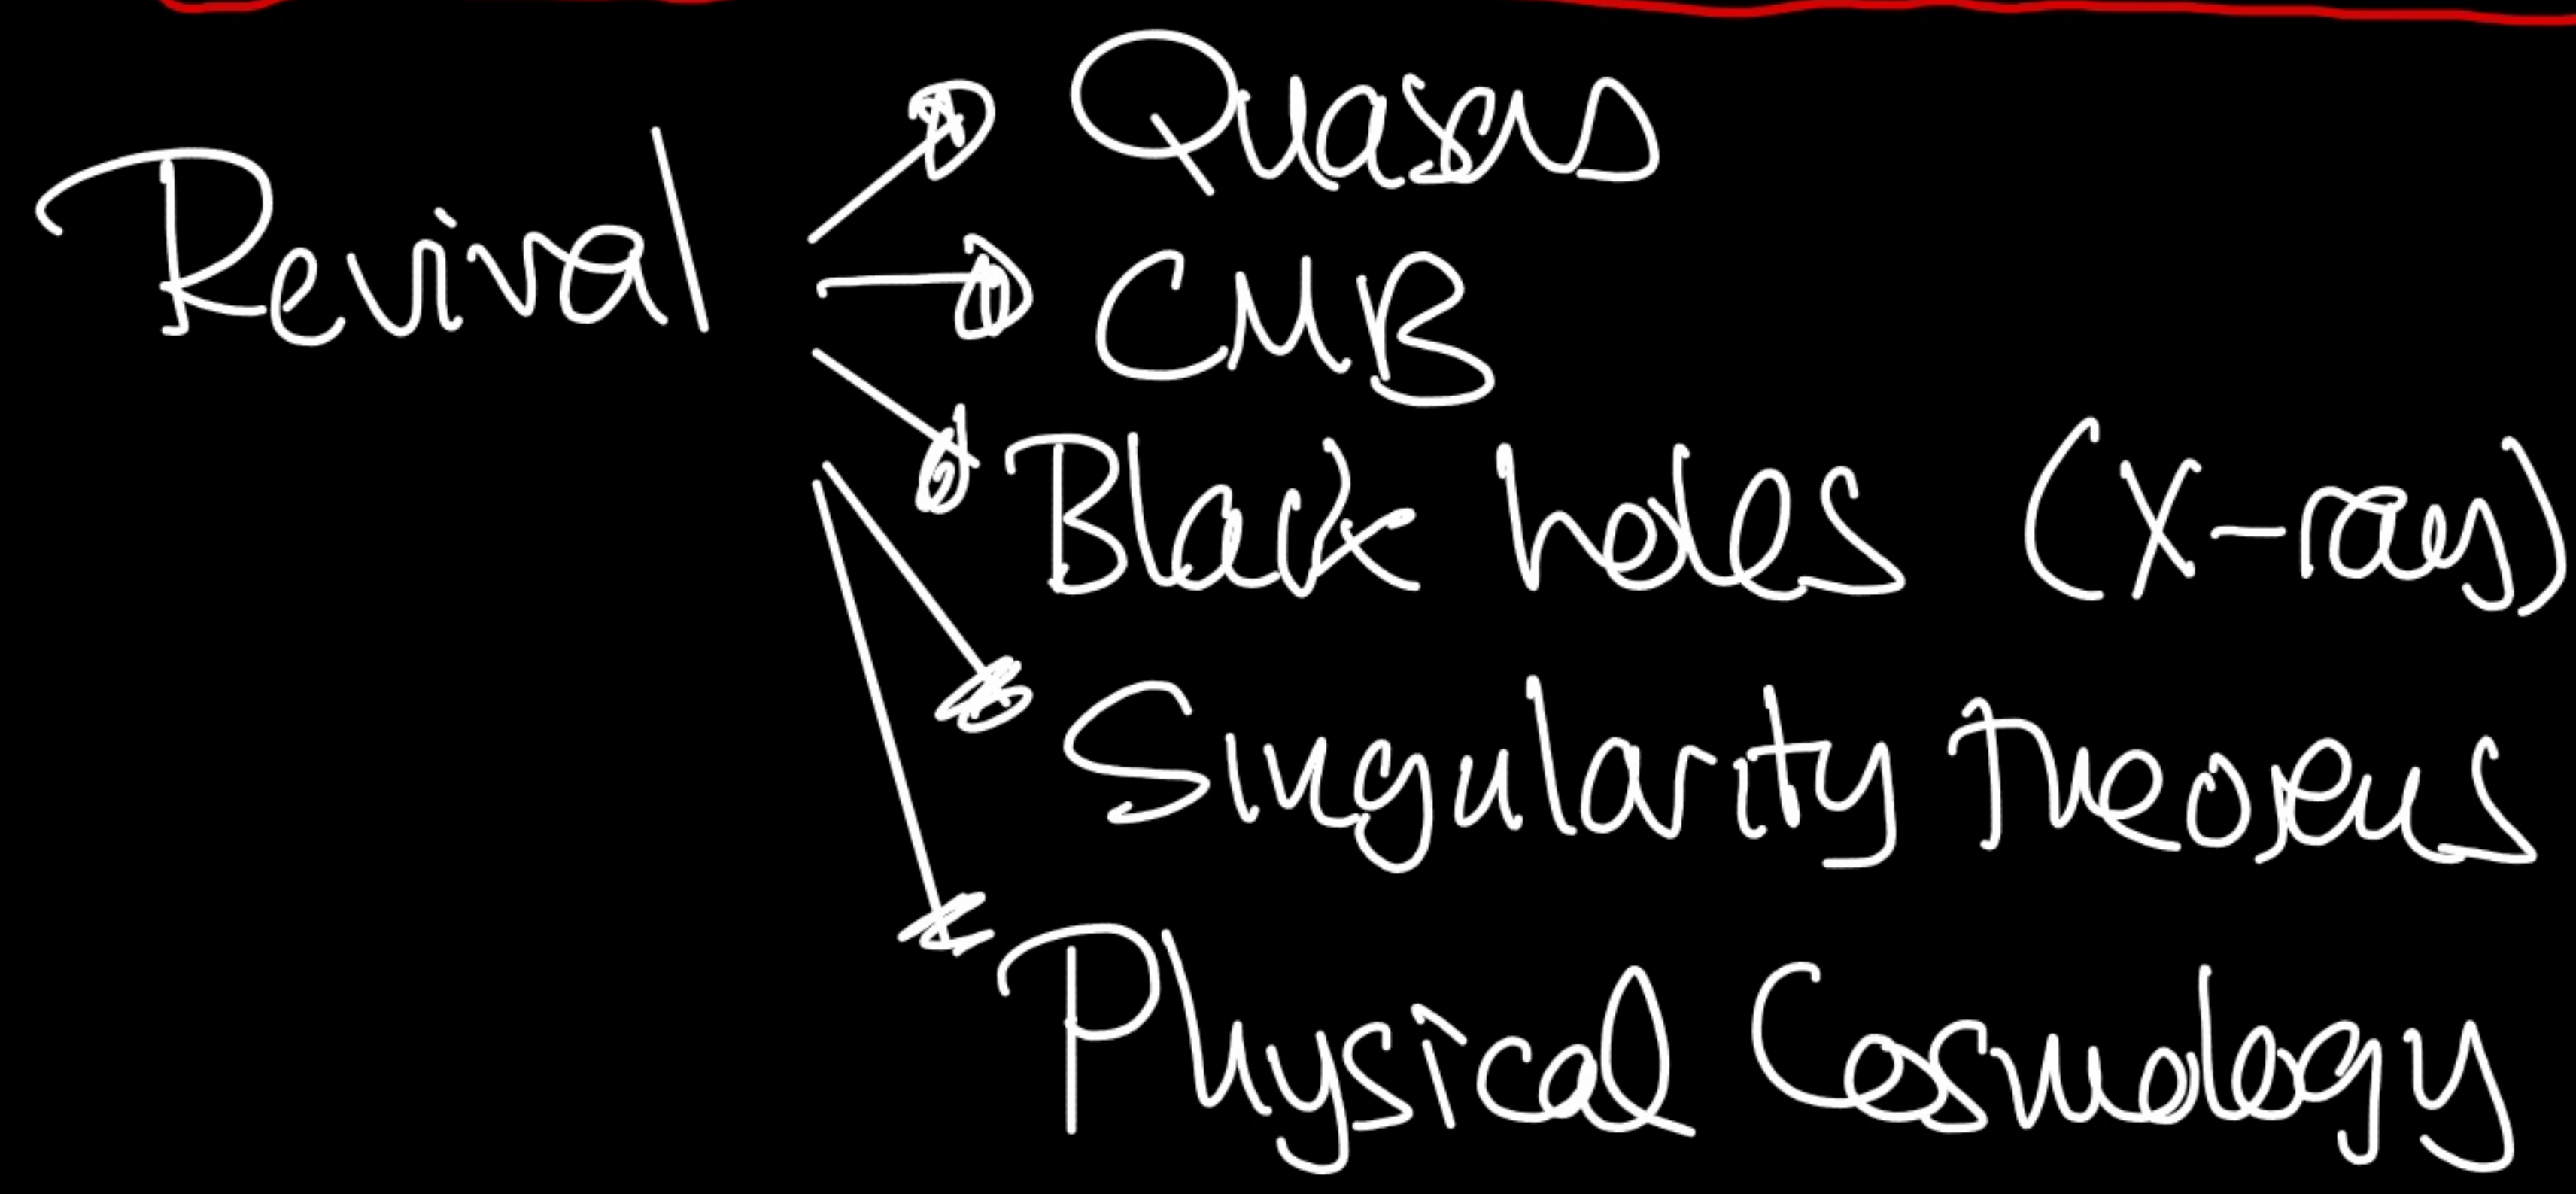 Revival
Quasars
CMB
Black holes (X-ray)
Singularity theorems
Physical Cosmology